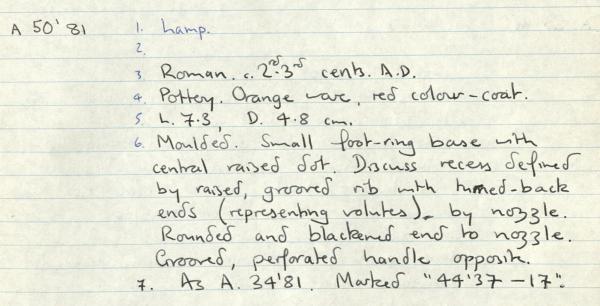 A 50'81 1. Lamp.
2.
3 Roman. c. 2nd-3rd cents. A.D.
4. Pottery. Orange ware, red colour-coat.
5 L. 7.3, D. 4.8 cm.
6. Moulded. Small foot-ring base with
central raised dot. Discuss recess defined
by raised, grooved rib with turned-back
ends (representing volutes), by nozzle.
Rounded and blackened end to nozzle.
Grooved, perforated handle opposite.
7. As A. 34'81. Marked "44'37-17".